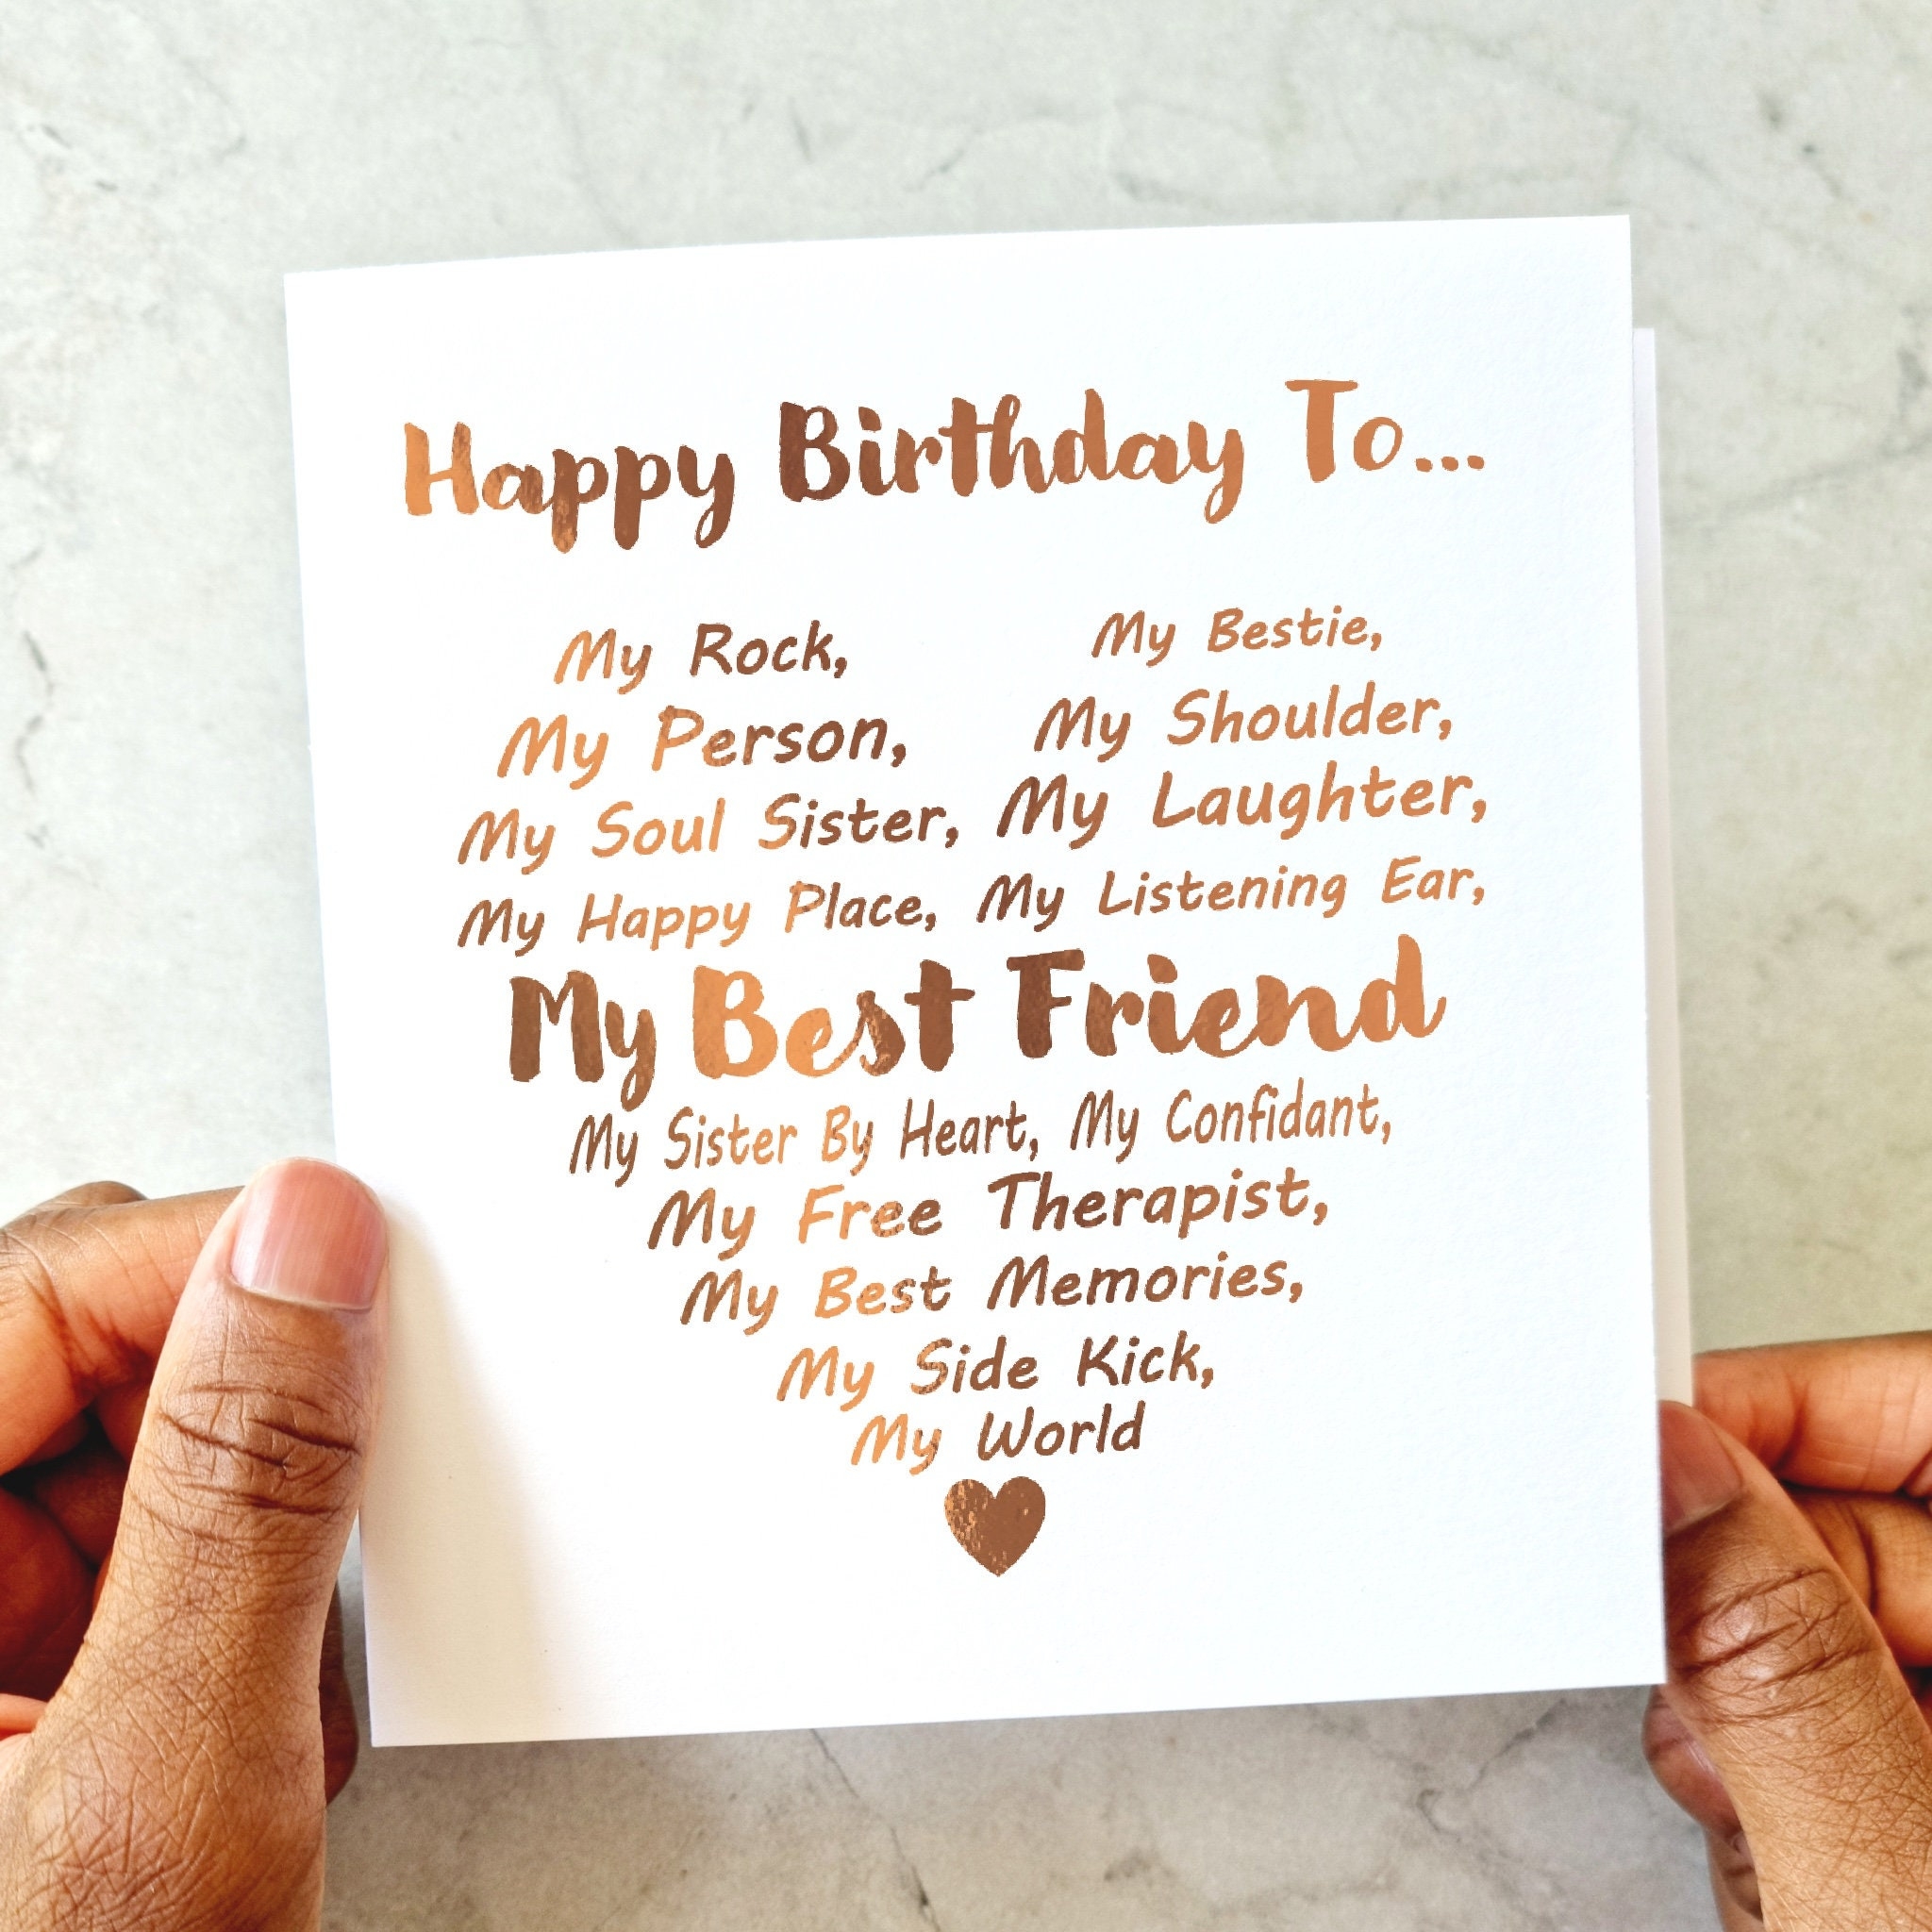 Happy Birthday To...
My Rock, My Bestie,
My Person, My Shoulder,
My Soul Sister, My Laughter,
My Happy Place, My Listening Ear,
My Best Friend
My Sister By Heart, My Confidant,
My Free Therapist,
My Best Memories,
My Side Kick,
My World